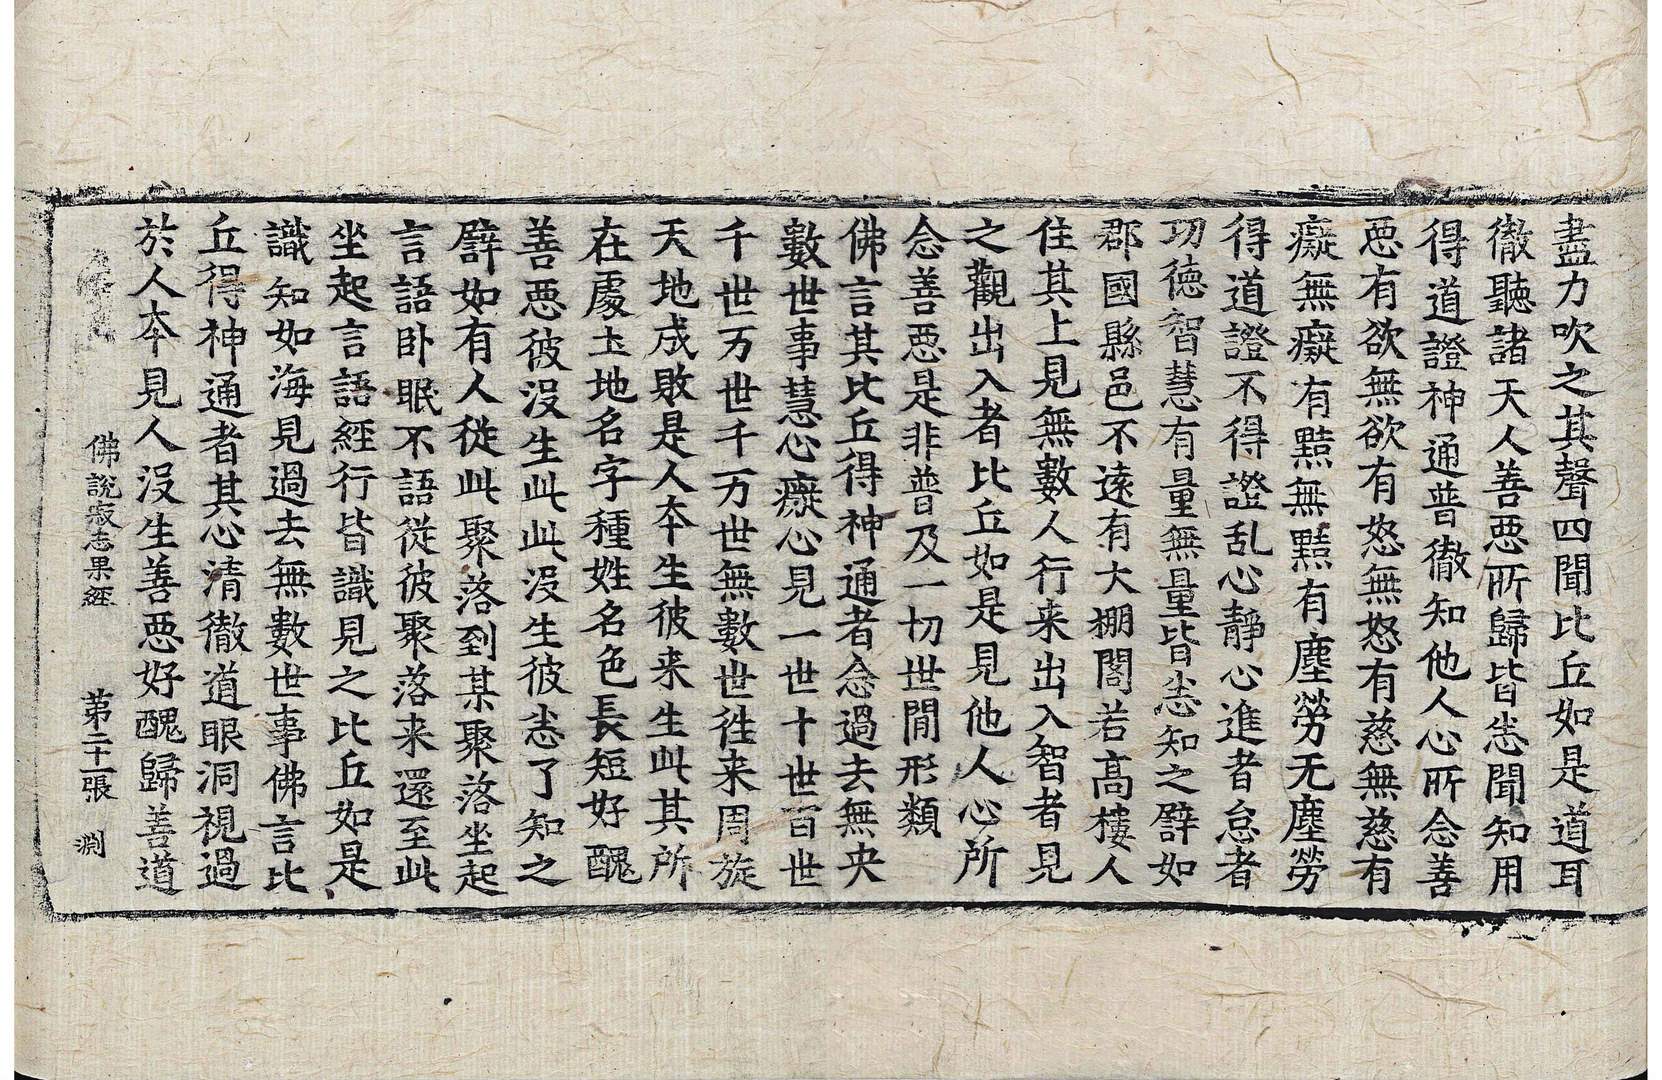 盡力吹之其聲四聞比丘如是道耳
徹聽諸天人善惡所歸皆悉聞知用
得道證神通普徹知他人心所念善
惡有欲無欲有怒無怒有慈無慈有
癡無癡有黠無黠有塵勞无塵勞
得道證不得證乱心靜心進者怠者
功德智慧有量無量皆悉知之譬如
郡國縣邑不遠有大棚閣若高樓人
住其上見無數人行来出入智者見
之觀出入者比丘如是見他人心所
念善惡是非普及一切世間形類
佛言其比丘得神通者念過去無央
數世事慧心癡心見一世十世百世
千世万世千万世無數世徃来周旋
天地成敗是人本生彼来生此其所
在處土地名字種姓名色長短好醜
善惡彼沒生此此沒生彼悉了知之
譬如有人從此聚落到某聚落坐起
言語卧眠不語從彼聚落来還至此
坐起言語經行皆識見之比丘如是
識知如海見過去無數世事佛言比
丘得神通者其心清徹道眼洞視過
於人本見人沒生善惡好醜歸善道
佛說寂志果經 第二十一張 淵